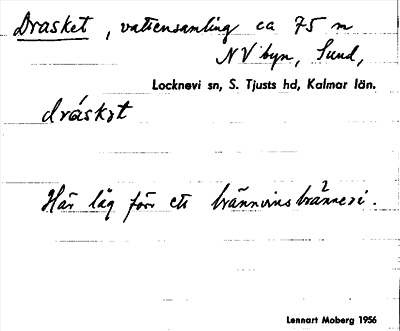 Drasket, vattensamling ca 75 m
NV byn, Sund,
Locknevi sn, S. Tjusts hd, Kalmar län.
dráskət
Här låg förr ett brännvinsbränneri.
Lennart Moberg 1956